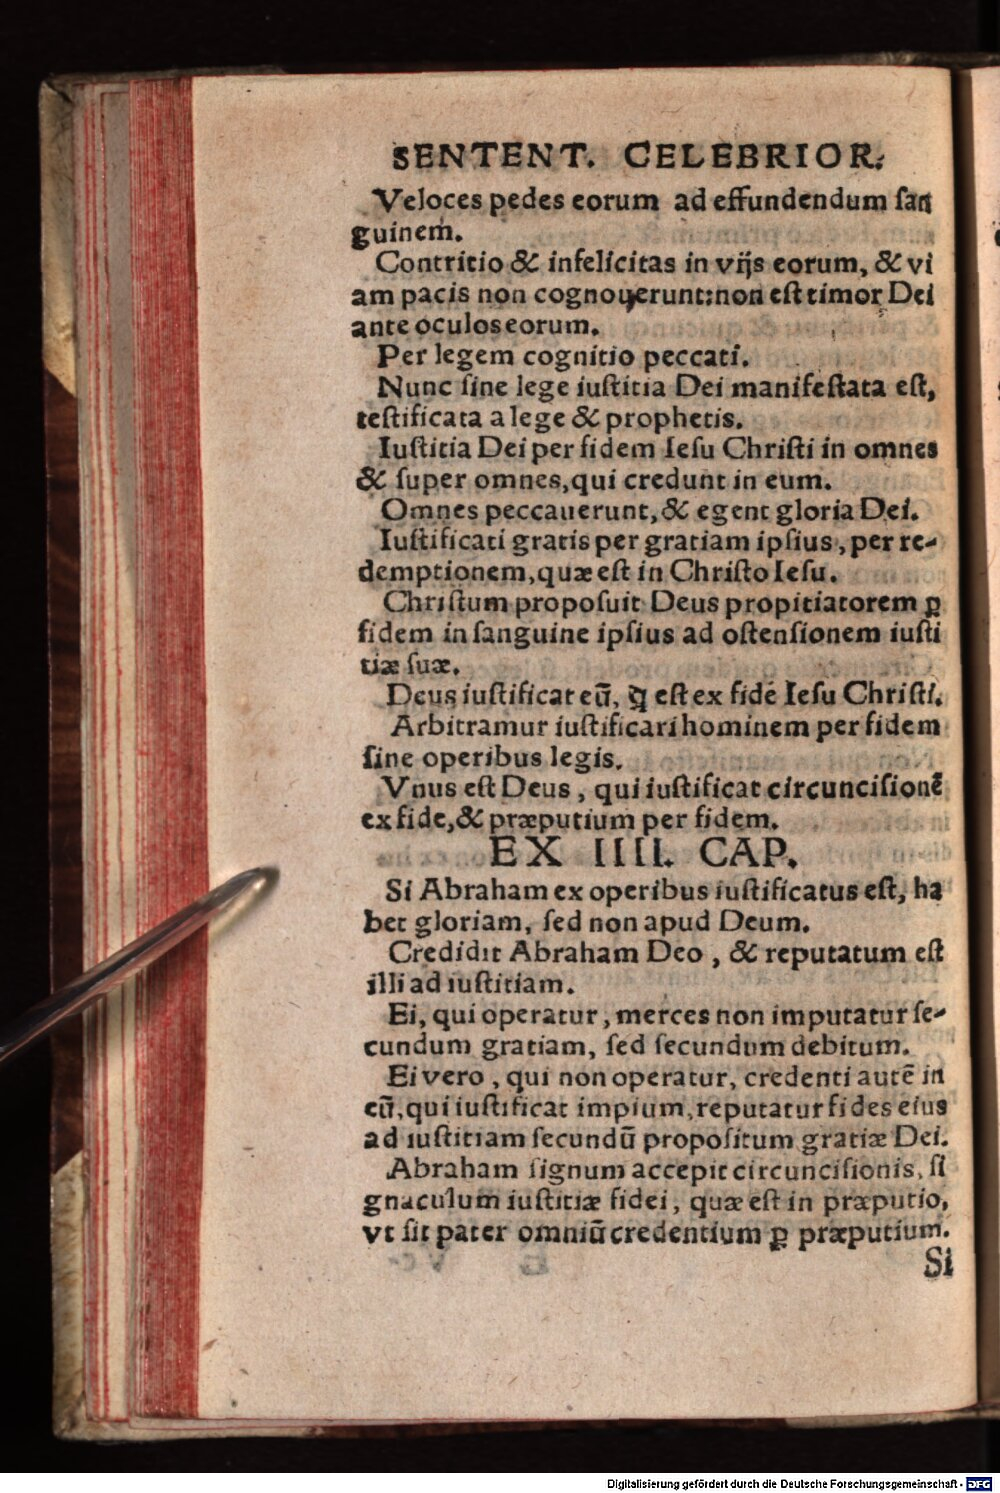 SENTENT. CELEBRIOR.
Veloces pedes eorum ad effundendum ſan
guinem.
Contritio & infelicitas in vijs eorum, & vi
am pacis non cognouerunt: non eſt timor Dei
ante oculos eorum.
Per legem cognitio peccati.
Nunc ſine lege iuſtitia Dei manifeſtata eſt,
teſtificata a lege & prophetis.
Iuſtitia Dei per fidem Ieſu Chriſti in omnes
& ſuper omnes, qui credunt in eum.
Omnes peccauerunt, & egent gloria Dei.
Iuſtificati gratis per gratiam ipſius, per re-
demptionem, quæ eſt in Chriſto Ieſu.
Chriſtum propoſuit Deus propitiatorem ꝑ
fidem in ſanguine ipſius ad oſtenſionem iuſti
tiæ ſuæ.
Deus iuſtificat eū, ꝗ eſt ex fide Ieſu Chriſti.
Arbitramur iuſtificari hominem per fidem
ſine operibus legis.
Vnus eſt Deus, qui iuſtificat circunciſionē
ex fide, & præputium per fidem.
EX IIII. CAP.
Si Abraham ex operibus iuſtificatus eſt, ha
bet gloriam, ſed non apud Deum.
Credidit Abraham Deo, & reputatum eſt
illi ad iuſtitiam.
Ei, qui operatur, merces non imputatur ſe-
cundum gratiam, ſed ſecundum debitum.
Ei vero, qui non operatur, credenti autē in
eū, qui iuſtificat impium, reputatur fides eius
ad iuſtitiam ſecundū propoſitum gratiæ Dei.
Abraham ſignum accepit circunciſionis, ſi
gnaculum iuſtitiæ fidei, quæ eſt in præputio,
vt ſit pater omniū credentium ꝑ præputium.
Si
Digitalisierung gefördert durch die Deutsche Forschungsgemeinschaft - DFG